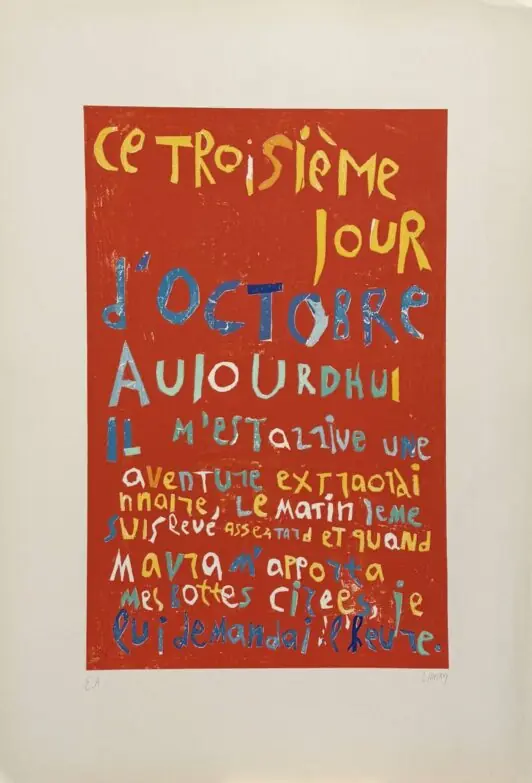 Ce TROiSième
JOUR
d'OCTOBRe
AUJOURDHUI
IL m'esT arrive une
aventure extraordi
nnaire, Le matin jeme
suis levé assertard et quand
mavra m'apporta
mes bottes cirées, je
lui demandai l'heure.
E.A